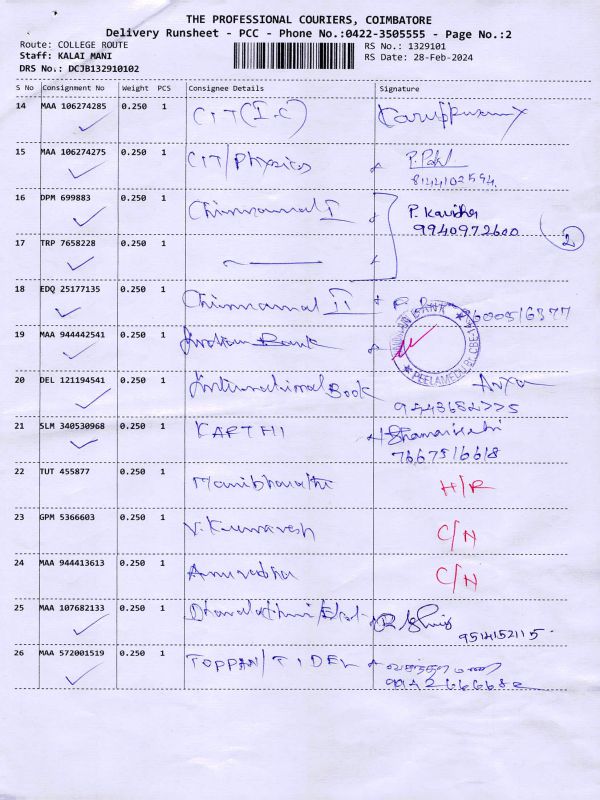 THE PROFESSIONAL COURIERS, COIMBATORE
Delivery Runsheet - PCC - Phone No.:0422-3505555 - Page No.:2
Route: COLLEGE ROUTE RS No.: 1329101
Staff: KALAI MANI RS Date: 28-Feb-2024
DRS No.: DCJB132910102
S No Consignment No Weight PCS Consignee Details Signature
14 MAA 106274285 0.250 1 CIT (I.C)
15 MAA 106274275 0.250 1 CIT/Physics
8144102594
16 DPM 699883 0.250 1 Chinnamal I P. Kavitha
9940972600
2
17 TRP 7658228 0.250 1
18 EDQ 25177135 0.250 1 Chinnamal II 9600516377
19 MAA 944442541 0.250 1 Indian Bank INDIAN BANK
PEELAMEDU Br. CBE
20 DEL 121194541 0.250 1 International Book
21 SLM 340530968 0.250 1 KARTHI
7667516618
22 TUT 455877 0.250 1 Manibharathi H/R
23 GPM 5366603 0.250 1 V. Kumaresh C/N
24 MAA 944413613 0.250 1 Anuradha C/N
25 MAA 107682133 0.250 1
9514152115
26 MAA 572001519 0.250 1 TOPPAN/TIDEL